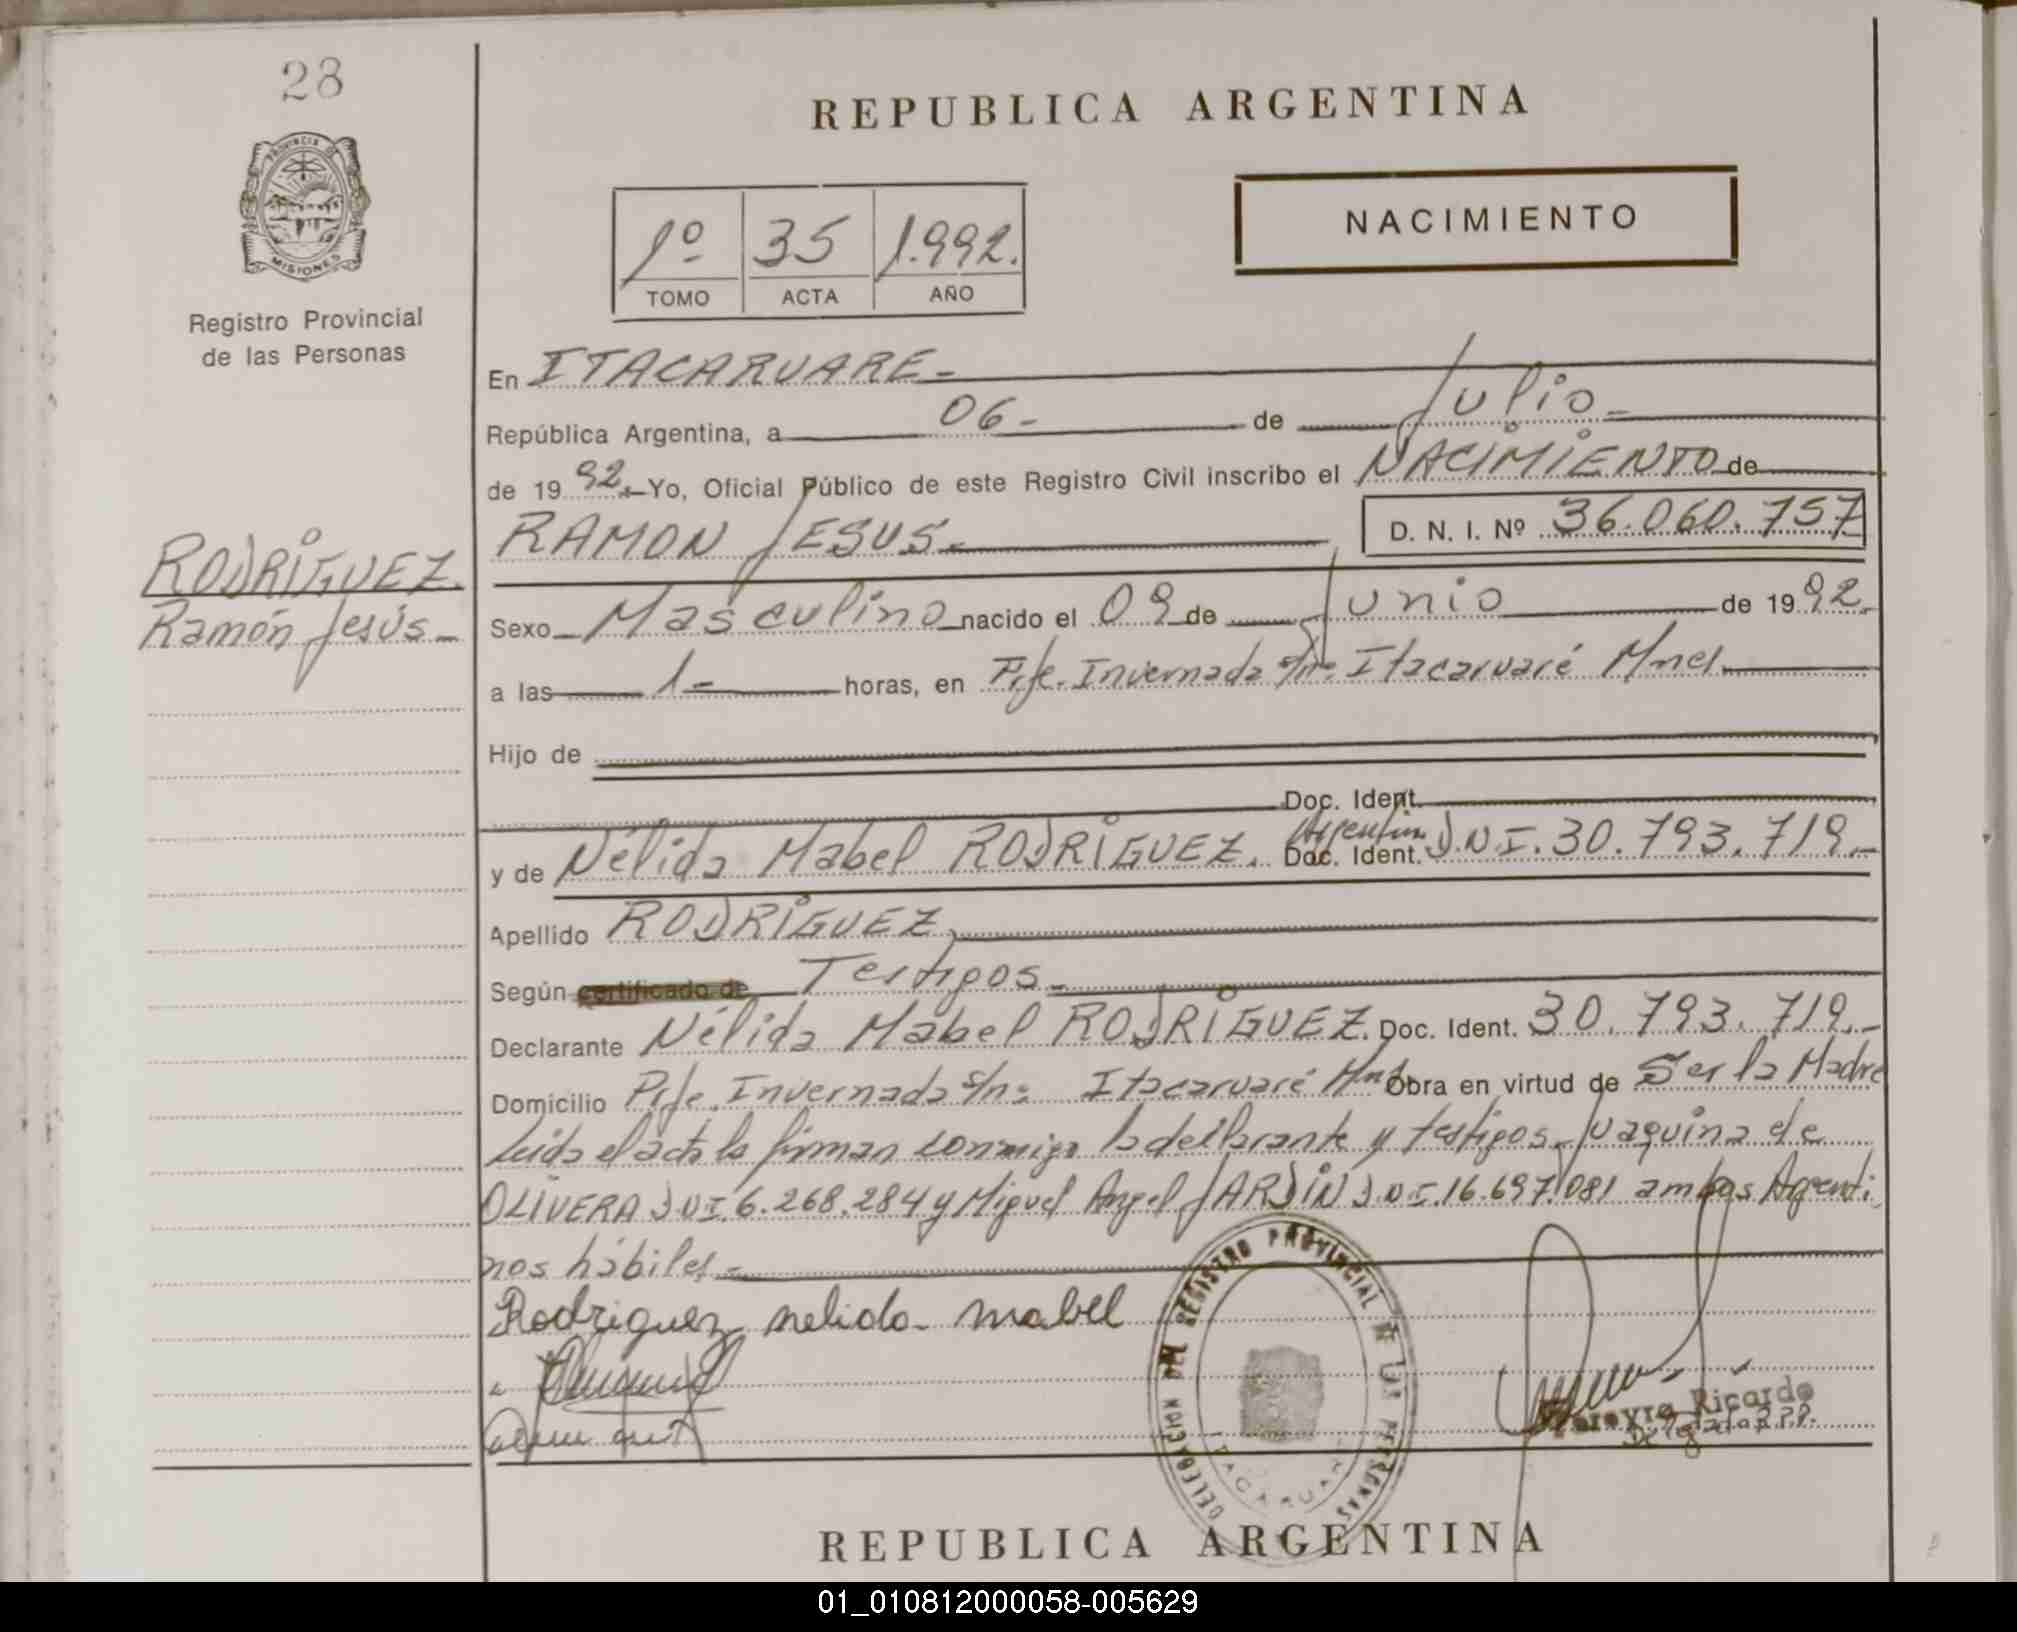 28
REPUBLICA ARGENTINA
PROVINCIA DE
MISIONES
Registro Provincial
de las Personas
1º 35 1.992.
TOMO ACTA AÑO
NACIMIENTO
En ITACARUARE-
República Argentina, a 06- de Julio-
de 19 92.- Yo, Oficial Público de este Registro Civil inscribo el NACIMIENTO de
RAMON JESUS.- D. N. I. Nº 36.060.757
RODRIGUEZ.
Ramón Jesús-
Sexo Masculino nacido el 09 de Junio de 19 92.
a las 1- horas, en Pje. Invernada s/nº Itacaruaré Mnes.
Hijo de
Doc. Ident.
y de Nélida Mabel RODRIGUEZ. Argentina Doc. Ident. D.N.I. 30.793.719.-
Apellido RODRIGUEZ.
Según certificado de Testigos-
Declarante Nélida Mabel RODRIGUEZ. Doc. Ident. 30.793.719.-
Domicilio Pje. Invernada s/nº Itacaruaré Mnes Obra en virtud de Ser la Madre
Leida el acta la firman conmigo la declarante y testigos Juaquina de
OLIVERA D.N.I. 6.268.284 y Miguel Angel JARDIN D.N.I. 16.697.081 ambos Argenti
nos hábiles.-
Rodriguez nelida mabel
DELEGACION DEL REGISTRO PROVINCIAL DE LAS PERSONAS
ITACARUARE
Pereyra Ricardo
REPUBLICA ARGENTINA
01_010812000058-005629